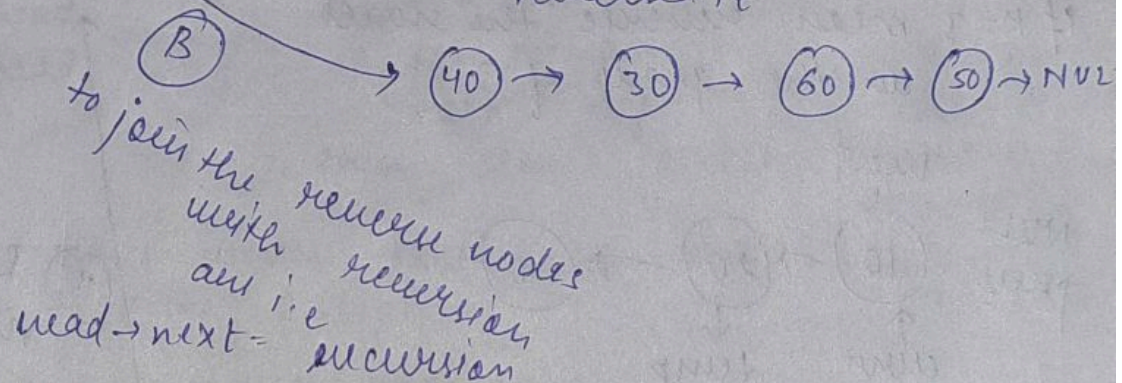 B
40 → 30 → 60 → 50 → NUL
to join the reverse nodes
with recursion
ans i.e
head → next = recursion